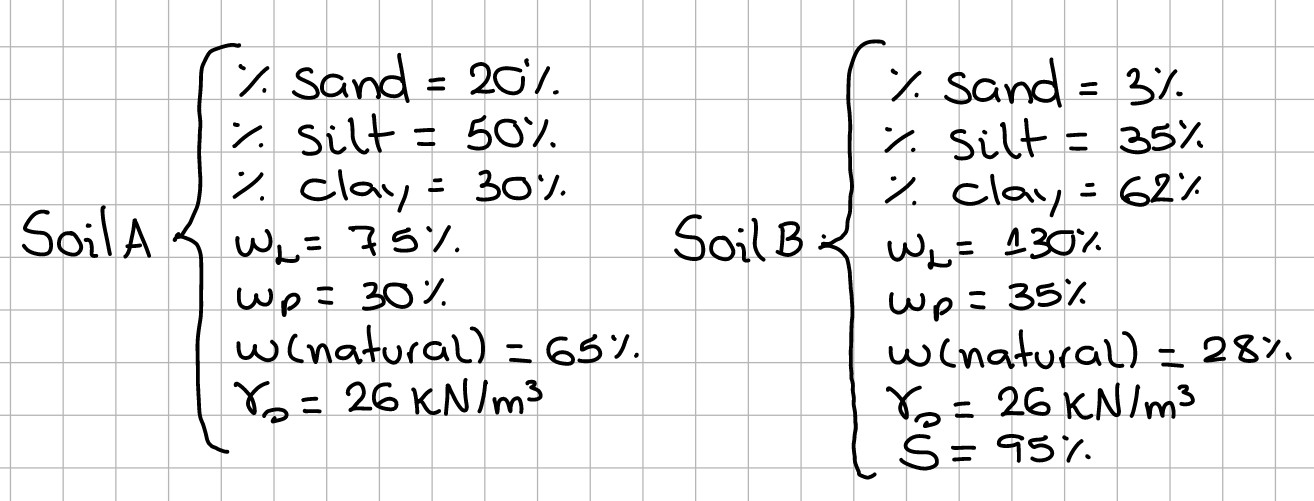 Soil A
% sand = 20%.
% silt = 50%.
% clay = 30%.
w_L = 75%.
w_P = 30%.
w(natural) = 65%.
γ_s = 26 KN/m³
Soil B
% sand = 3%.
% silt = 35%
% clay = 62%
w_L = 130%.
w_P = 35%
w(natural) = 28%.
γ_s = 26 KN/m³
S = 95%.